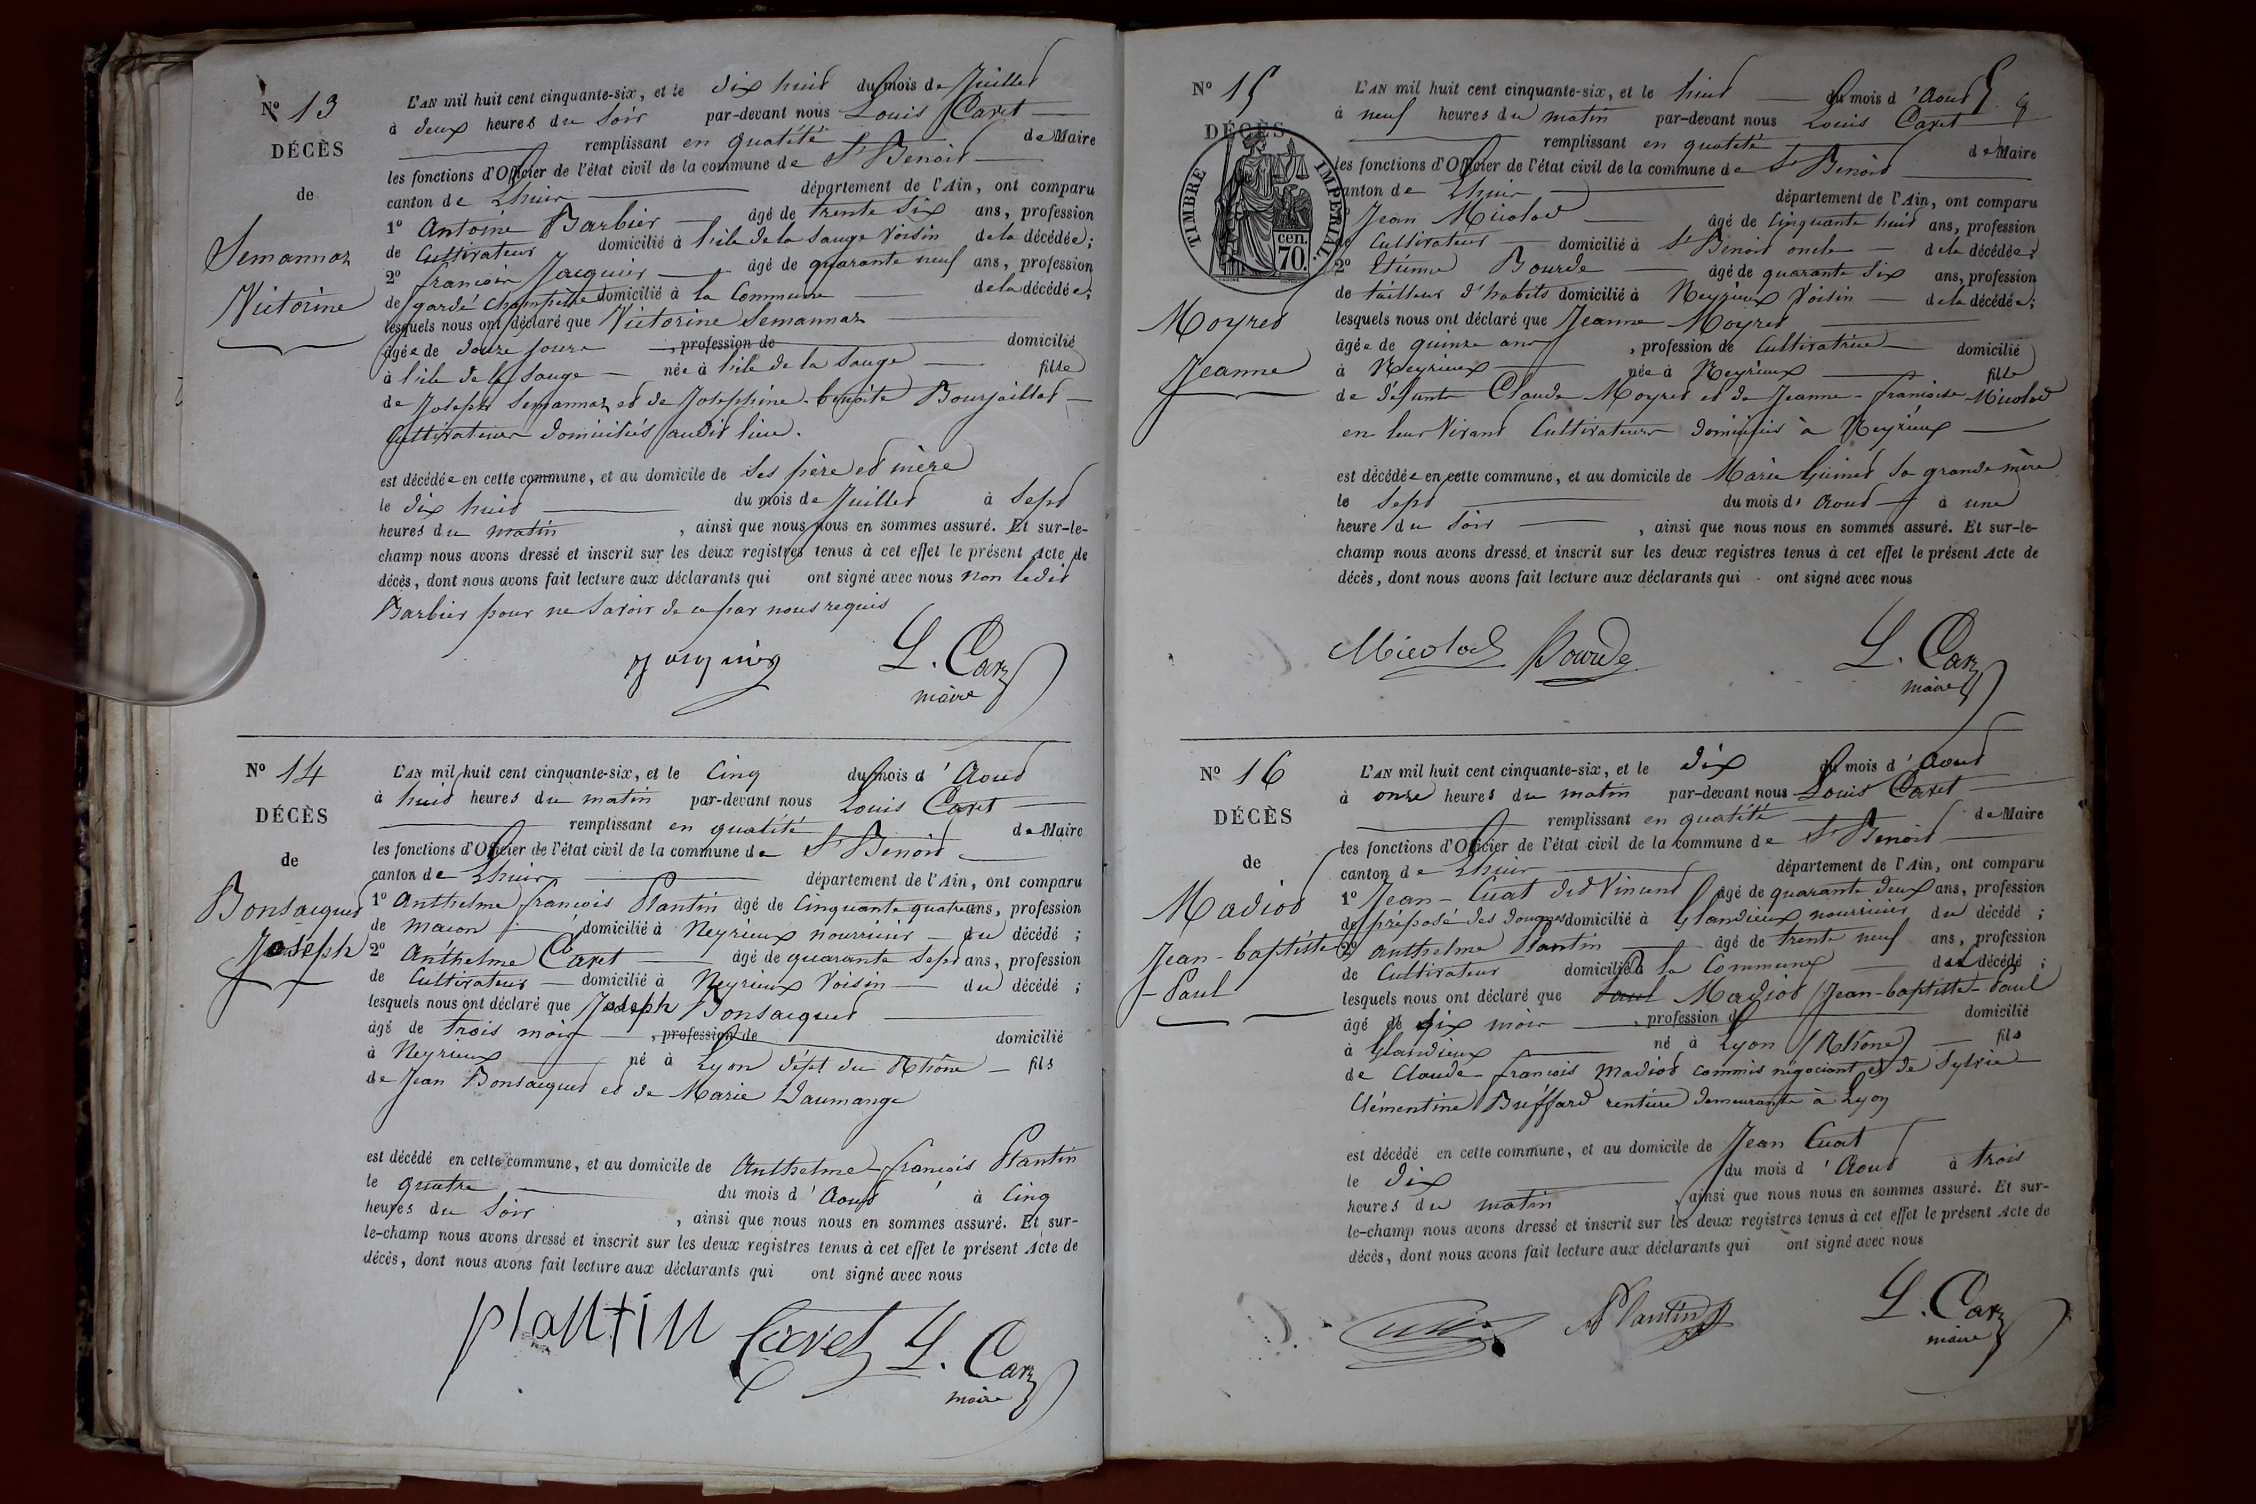 Nº 13
DÉCÈS
de
Semannaz
Victorine
L'AN mil huit cent cinquante-six, et le dix huit du mois de Juillet
à deux heures du soir par-devant nous Louis Caret
remplissant en qualité de Maire
les fonctions d'Officier de l'état civil de la commune de St Benoit
canton de Lhuis département de l'Ain, ont comparu
1º Antoine Barbier âgé de trente six ans, profession
de Cultivateur domicilié à l'ile de la Sauge voisin de la décédée;
2º françois Jacquier âgé de quarante neuf ans, profession
de garde champêtre domicilié à la Commune de la décédée;
lesquels nous ont déclaré que Victorine Semannaz
âgée de douze jours, profession de domicilié
à l'ile de la Sauge née à l'ile de la Sauge fille
de Joseph Semannaz et de Josephine-benoite Bourjaillat
Cultivateurs domiciliés audit lieu.
est décédée en cette commune, et au domicile de Ses père et mère
le dix huit du mois de Juillet à Sept
heures du matin, ainsi que nous nous en sommes assuré. Et sur-le-
champ nous avons dressé et inscrit sur les deux registres tenus à cet effet le présent Acte de
décès, dont nous avons fait lecture aux déclarants qui ont signé avec nous non ledit
Barbier pour ne Savoir de ce par nous requis
L. Caret
maire
Nº 14
DÉCÈS
de
Bonsacquet
Joseph
L'AN mil huit cent cinquante-six, et le Cinq du mois d'Aout
à huit heures du matin par-devant nous Louis Caret
remplissant en qualité de Maire
les fonctions d'Officier de l'état civil de la commune de St Benoit
canton de Lhuis département de l'Ain, ont comparu
1º Anthelme françois Plantin âgé de Cinquante quatre ans, profession
de macon domicilié à Neyrieux nourricier du décédé;
2º Anthelme Caret âgé de quarante Sept ans, profession
de Cultivateur domicilié à Neyrieux Voisin du décédé;
lesquels nous ont déclaré que Joseph Bonsacquet
âgé de trois mois, profession de domicilié
à Neyrieux né à Lyon dépt du Rhône fils
de Jean Bonsacquet et de Marie Daumange
est décédé en cette commune, et au domicile de Anthelme-françois Plantin
le quatre du mois d'Aout à Cinq
heures du Soir, ainsi que nous nous en sommes assuré. Et sur-
le-champ nous avons dressé et inscrit sur les deux registres tenus à cet effet le présent Acte de
décès, dont nous avons fait lecture aux déclarants qui ont signé avec nous
plantin Caret L. Caret
maire
Nº 15
DÉCÈS
TIMBRE IMPÉRIAL.
cen.
70.
Moyret
Jeanne
L'AN mil huit cent cinquante-six, et le huit du mois d'Aout
à neuf heures du matin par-devant nous Louis Caret
remplissant en qualité de Maire
les fonctions d'Officier de l'état civil de la commune de St Benoit
canton de Lhuis département de l'Ain, ont comparu
Jean Micolod âgé de Cinquante huit ans, profession
de Cultivateur domicilié à St Benoit oncle de la décédée;
2º Etienne Bourde âgé de quarante Six ans, profession
de tailleur d'habits domicilié à Neyrieux Voisin de la décédée;
lesquels nous ont déclaré que Jeanne Moyret
âgée de quinze ans, profession de Cultivatrice domicilié
à Neyrieux née à Neyrieux fille
de défunts Claude Moyret et de Jeanne-françoise Micolod
en leur Vivant Cultivateurs domiciliés à Neyrieux
est décédée en cette commune, et au domicile de Marie Guinet Sa grande mère
le Sept du mois d'Aout à une
heure du Soir, ainsi que nous nous en sommes assuré. Et sur-le-
champ nous avons dressé et inscrit sur les deux registres tenus à cet effet le présent Acte de
décès, dont nous avons fait lecture aux déclarants qui ont signé avec nous
Micolod Bourde L. Caret
maire
Nº 16
DÉCÈS
de
Madiod
Jean-baptiste
-Paul
L'AN mil huit cent cinquante-six, et le dix du mois d'Aout
à onze heures du matin par-devant nous Louis Caret
remplissant en qualité de Maire
les fonctions d'Officier de l'état civil de la commune de St Benoit
canton de Lhuis département de l'Ain, ont comparu
1º Jean-Cuat dit Vincent âgé de quarante deux ans, profession
de préposé des douanes domicilié à Glandieux nourricier du décédé;
2º Anthelme Plantin âgé de trente neuf ans, profession
de Cultivateur domicilié à la Commune du décédé;
lesquels nous ont déclaré que Paul Madiod Jean-baptiste-Paul
âgé de dix mois, profession de domicilié
à Glandieux né à Lyon (Rhône) fils
de Claude-françois Madiod commis négociant et de Sylvie
Clémentine Buffard rentière demeurante à Lyon
est décédé en cette commune, et au domicile de Jean Cuat
le dix du mois d'Aout à trois
heures du matin, ainsi que nous nous en sommes assuré. Et sur-
le-champ nous avons dressé et inscrit sur les deux registres tenus à cet effet le présent Acte de
décès, dont nous avons fait lecture aux déclarants qui ont signé avec nous
Plantin L. Caret
maire